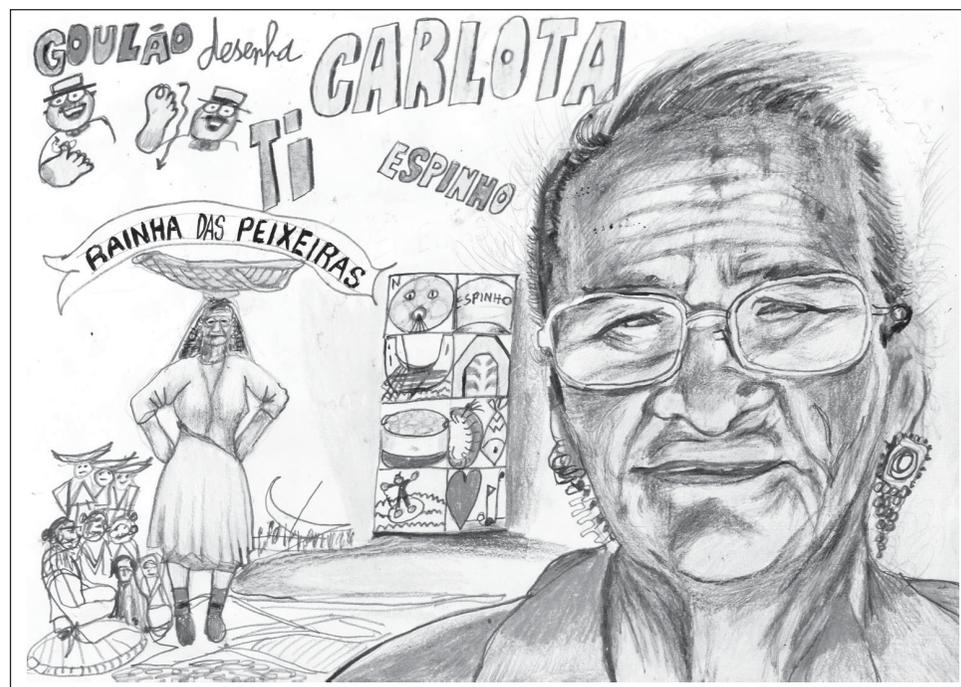 GOULÃO desenha
Ti CARLOTA
ESPINHO
RAINHA DAS PEIXEIRAS
N
ESPINHO